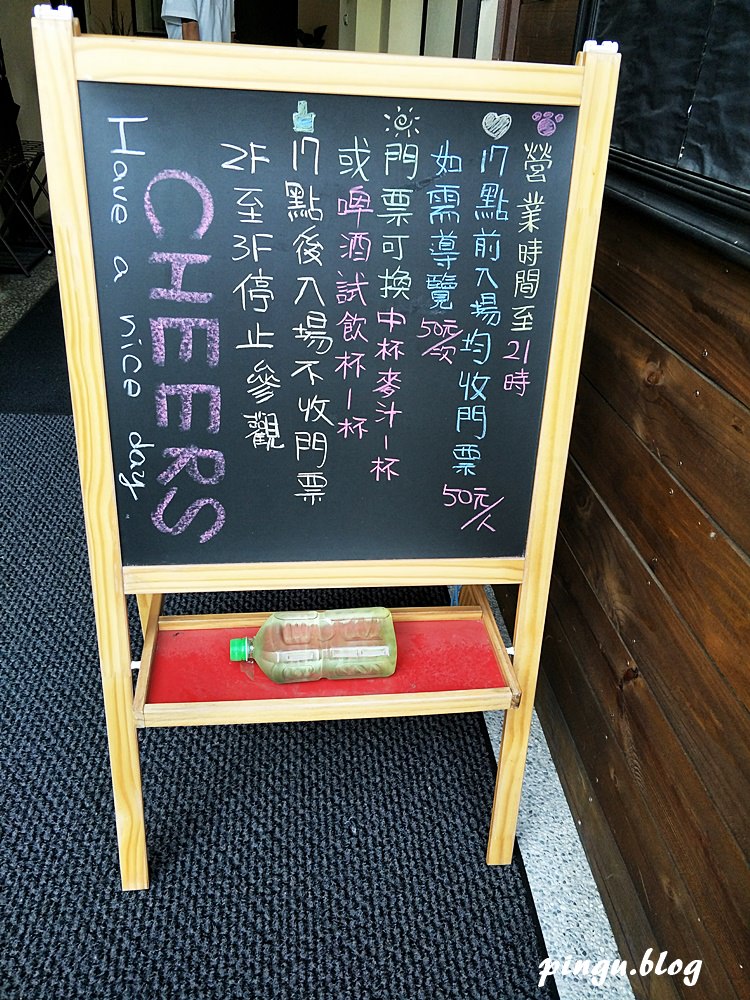 營業時間至21時
17點前入場均收門票50元/人
如需導覽50元/次
門票可換中杯麥汁一杯
或啤酒試飲杯一杯
17點後入場不收門票
2F至3F停止參觀
CHEERS
Have a nice day..
pingu.blog